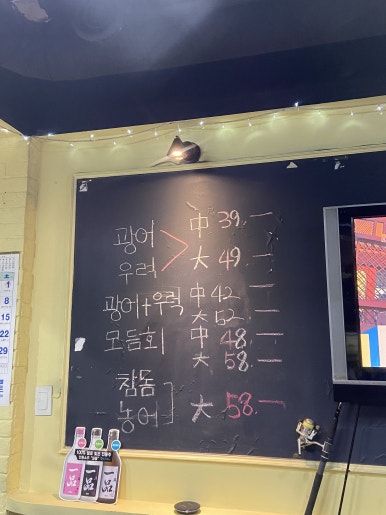 광어 中 39.–
우럭 大 49.–
광어+우럭 中 42 –
大 52.–
모듬회 中 48.–
大 58.–
참돔
농어 大 58.–
土
1
8
15
22
29
一品 一品 一品